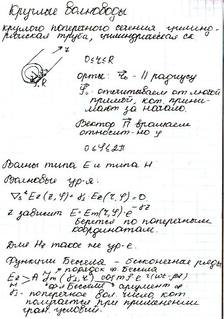 Круглые волноводы
круглого поперечного сечения цилинд-
рическая труба, цилиндрическая ск
z
0≤r≤R
R
Орты: r̄₀ - || радиусу
φ̄₀ - отсчитываем от любой
прямой, кот. прини-
мают за начало
Вектор П̄ вращаем
относит-но
0≤φ≤2π
Волны типа E и типа H
Волновые ур-я:
(r,φ)=0
z зависит
Берется по поперечным
координатам.
Для Hz такое же ур-е.
Функции Бесселя - бесконечные ряды
порядок ф Бесселя
ф-ия Бесселя аргумент
- поперечное вол число, кот
получается при применении
гран. условий.